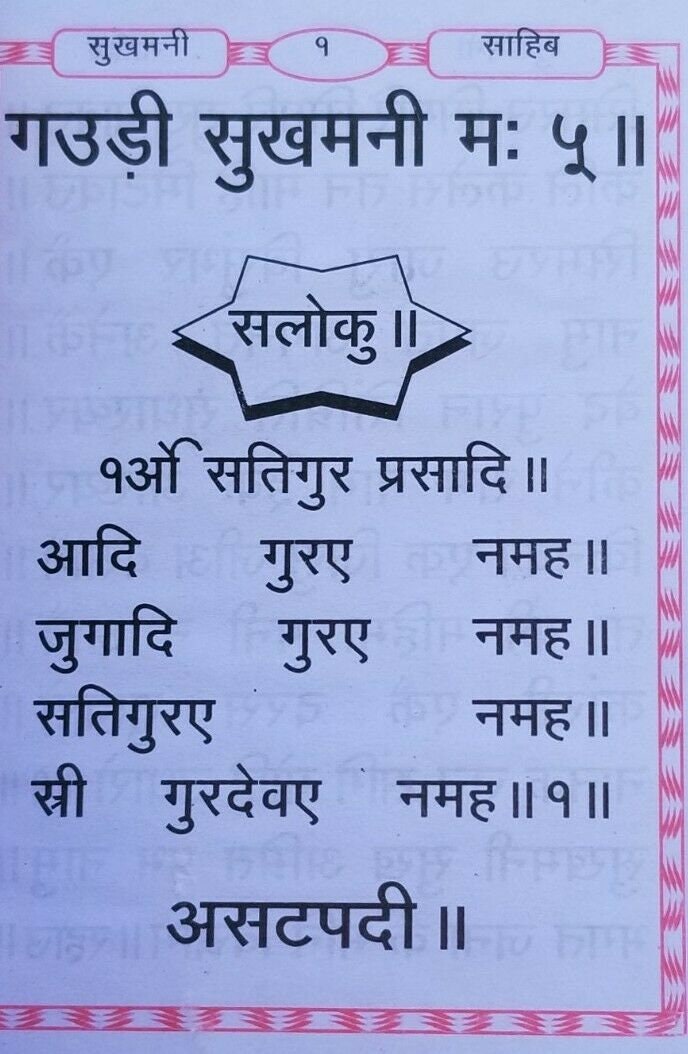 सुखमनी १ साहिब
गउड़ी सुखमनी मः ५॥
सलोकु॥
१ओं सतिगुर प्रसादि॥
आदि गुरए नमह॥
जुगादि गुरए नमह॥
सतिगुरए नमह॥
स्री गुरदेवए नमह॥१॥
असटपदी॥